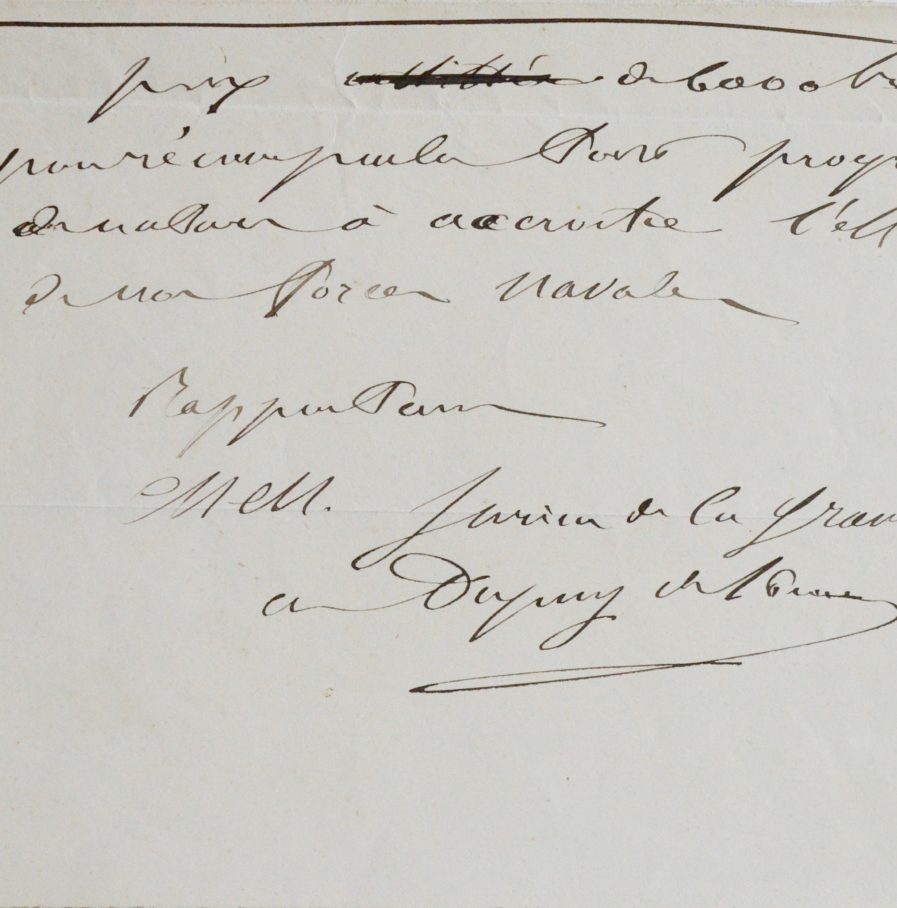 prix de 6000 fr
pour récompenser tout progr
de nature à accroitre l'eff
de nos forces navales
Rapporteurs
MM. Jurien de la Grav
et Dupuy de Lome